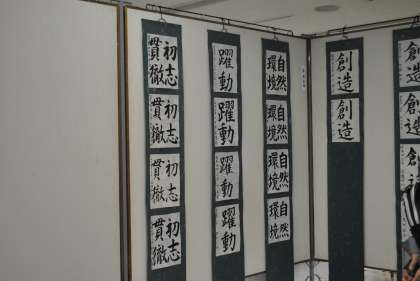 初志
貫徹
初志
貫徹
初志
貫徹
初志
貫徹
躍動
躍動
躍動
躍動
自然
環境
自然
環境
自然
環境
自然
環境
創造
創造
創
創造
創